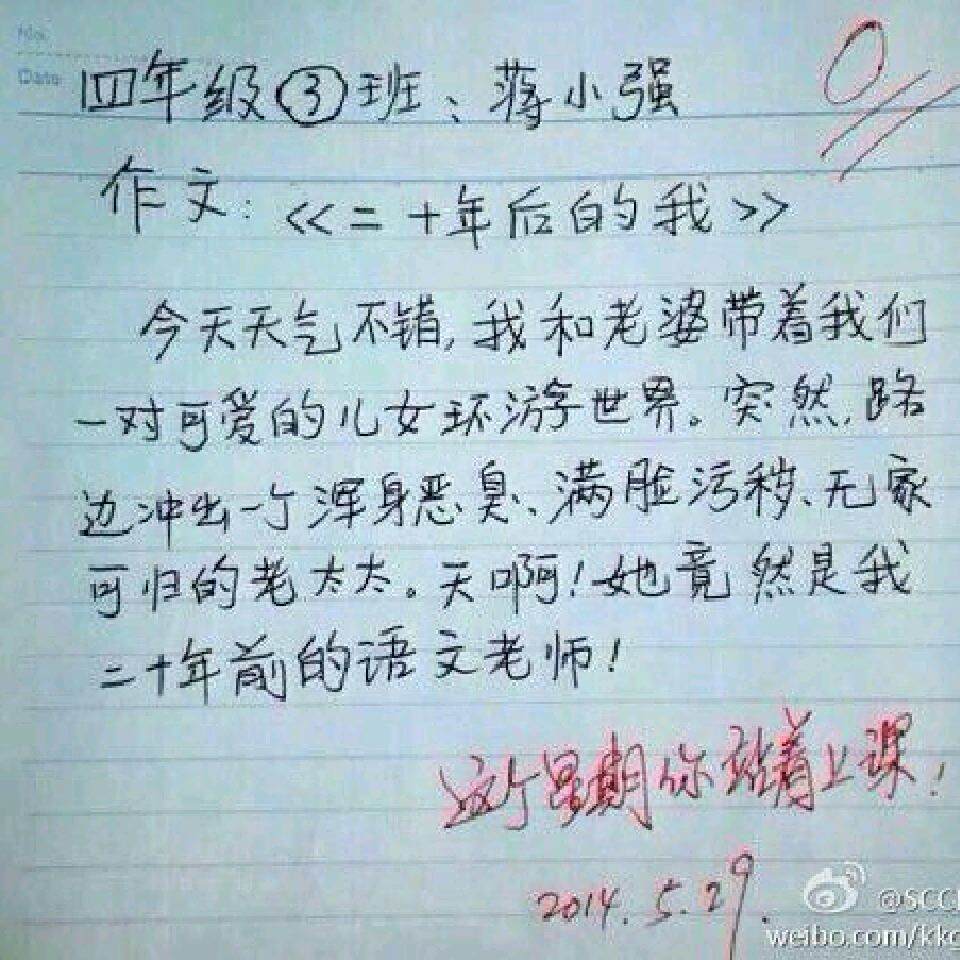 No.
Date
0
四年级③班、蒋小强
作文:《二十年后的我》
今天天气不错,我和老婆带着我们
一对可爱的儿女环游世界。突然,路
边冲出一个浑身恶臭、满脸污秽、无家
可归的老太太。天啊!她竟然是我
二十年前的语文老师!
这个星期你站着上课!
2014.5.29.
@SCC
weibo.com/kkc